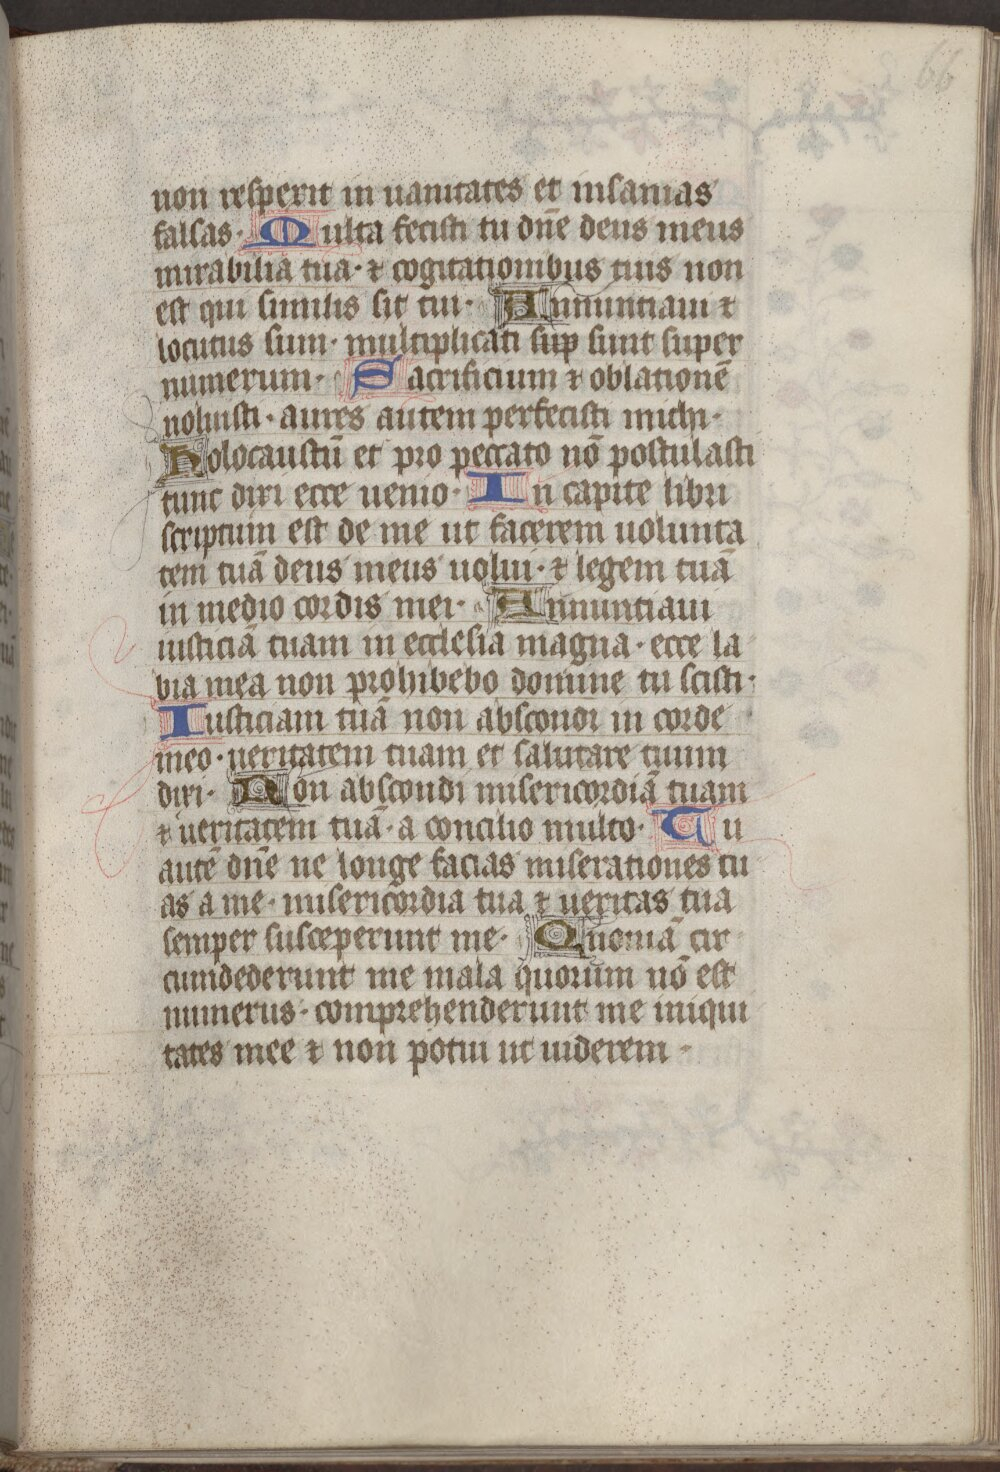 66
non resperit in uanitates et insanias
falsas· Multa fecisti tu dn̄e deus meus
mirabilia tua· ⁊ cogitationibus tuis non
est qui similis sit tui· Annuntiaui ⁊
locutus sum· multiplicati sup sunt super
numerum· Sacrificium ⁊ oblationē
noluisti· aures autem perfecisti michi·
Holocaustū et pro peccato nō postulasti
tunc dixi ecce uenio· In capite libri
scriptum est de me ut facerem uolunta
tem tuā deus meus uolui· ⁊ legem tuā
in medio cordis mei· Annuntiaui
iusticiā tuam in ecclesia magna· ecce la
bia mea non prohibebo domine tu scisti·
Iusticiam tuā non abscondi in corde
meo· ueritatem tuam et salutare tuum
dixi· Non abscondi misericordiā tuam
⁊ ueritatem tuā· a concilio multo· Tu
autē dn̄e ne longe facias miserationes tu
as a me· misericordia tua ⁊ ueritas tua
semper susceperunt me· Quoniā cir
cumdederunt me mala quorum nō est
numerus· comprehenderunt me iniqui
tates mee ⁊ non potui ut uiderem·